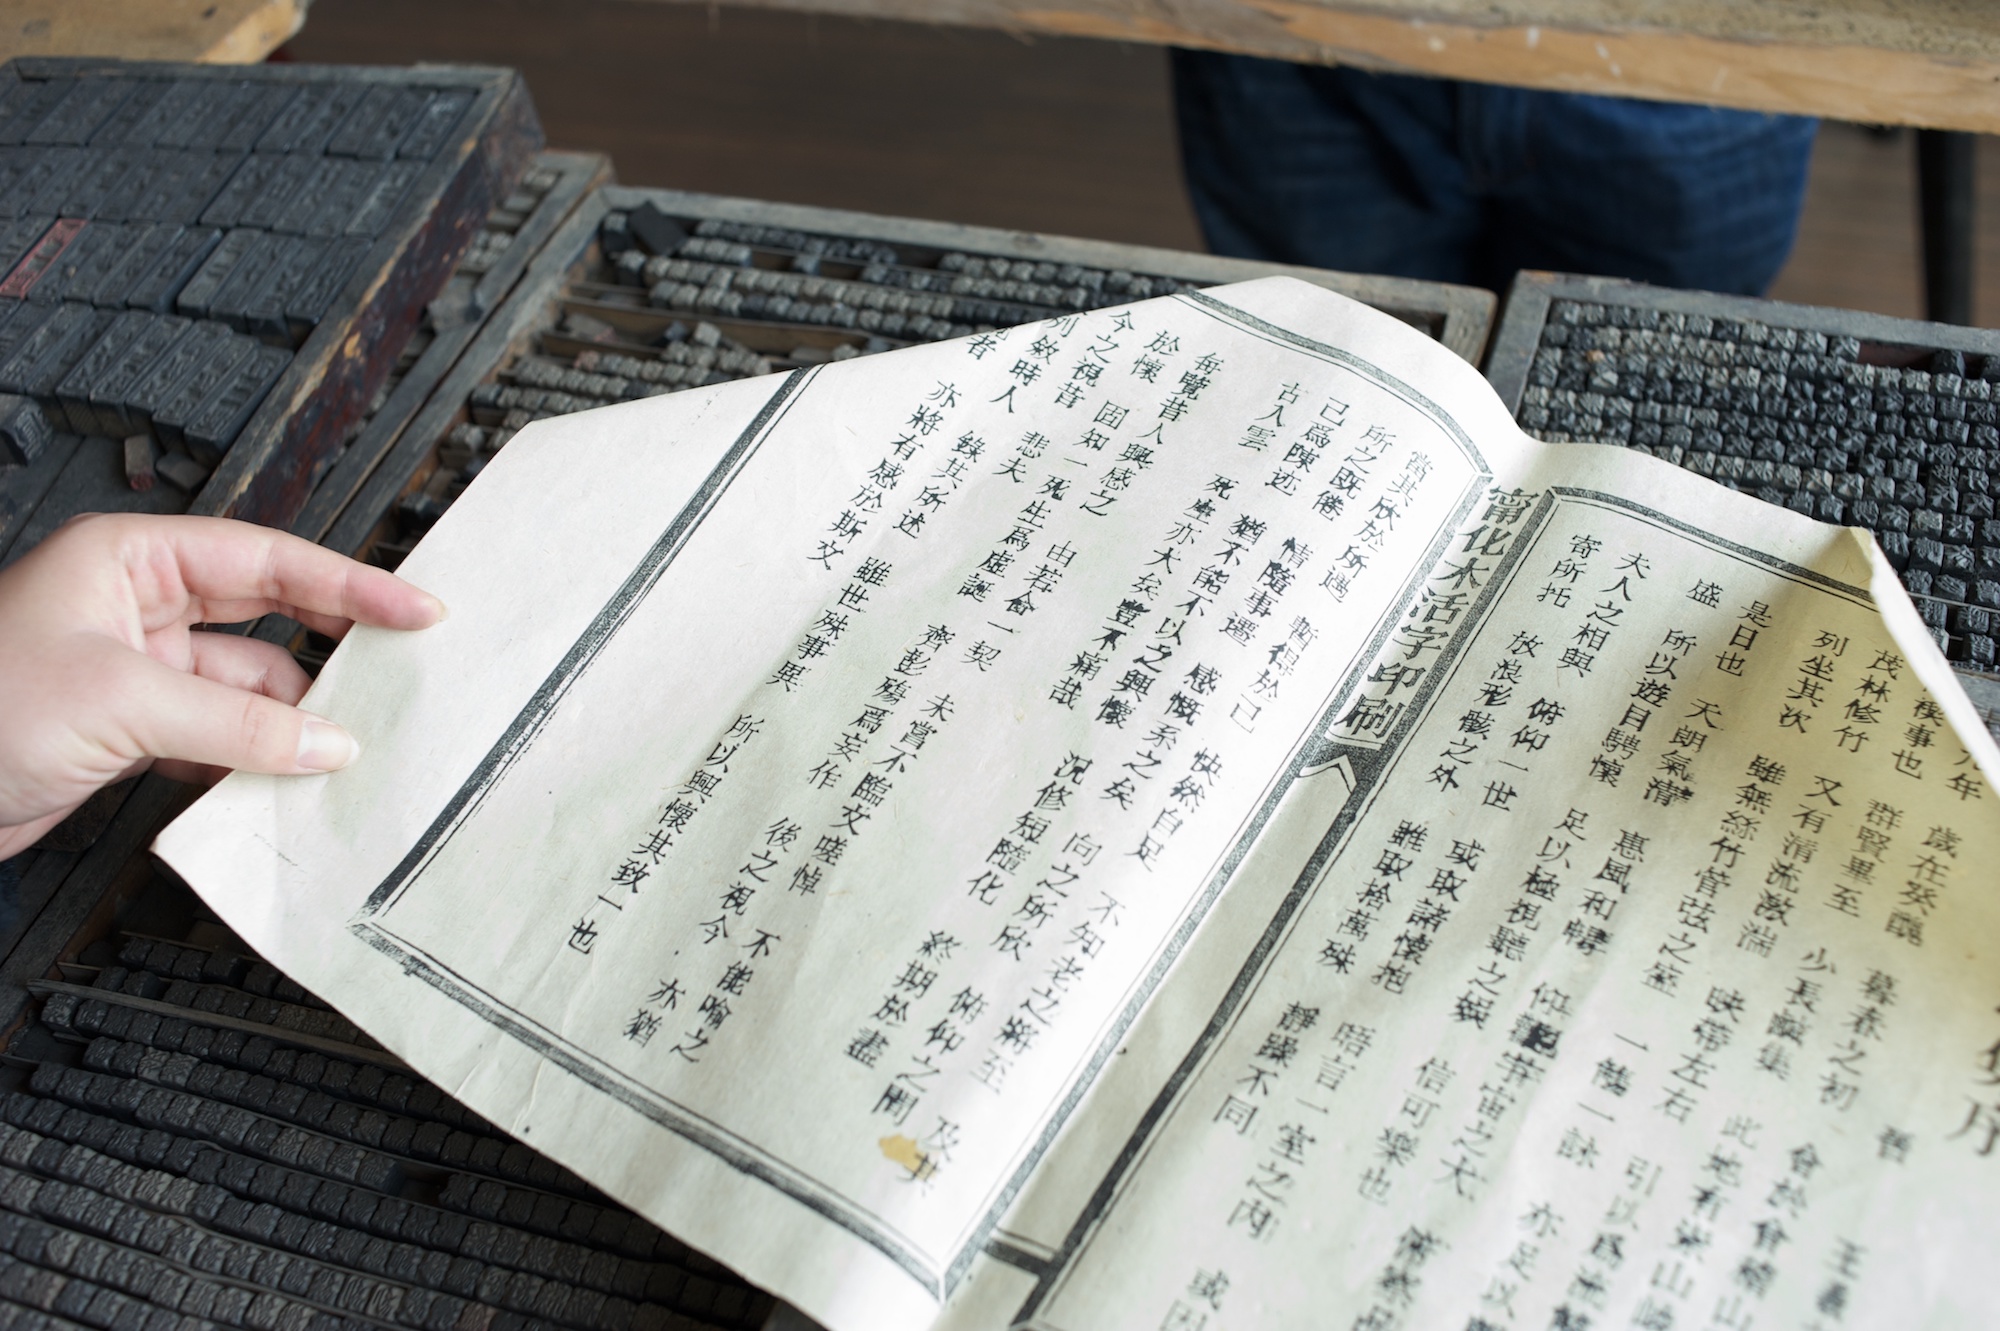 序
晉 王羲
元年 歲在癸醜 暮春之初 會於會稽山
禊事也 群賢畢至 少長鹹集 此地有崇山峻
茂林修竹 又有清流激湍 映帶左右 引以爲流觴
列坐其次 雖無絲竹管弦之盛 一觴一詠 亦足以
是日也 天朗氣清 惠風和暢 仰觀宇宙之大 俯察品
盛 所以遊目騁懷 足以極視聽之娛 信可樂也
夫人之相與 俯仰一世 或取諸懷抱 晤言一室之內 或因
寄所托 放浪形骸之外 雖取捨萬殊 靜躁不同
甯化木活字印刷
當其欣於所遇 暫得於己 快然自足 不知老之將至 及其
所之既倦 情隨事遷 感慨系之矣 向之所欣 俯仰之間
己爲陳迹 猶不能不以之興懷 況修短隨化 終期於盡
古人雲 死生亦大矣 豈不痛哉
每覽昔人興感之 由若合一契 未嘗不臨文嗟悼 不能喻之
於懷 固知一死生爲虛誕 齊彭殤爲妄作 後之視今 亦猶
今之視昔 悲夫
列敘時人 錄其所述 雖世殊事異 所以興懷其致一也
覽者 亦將有感於斯文